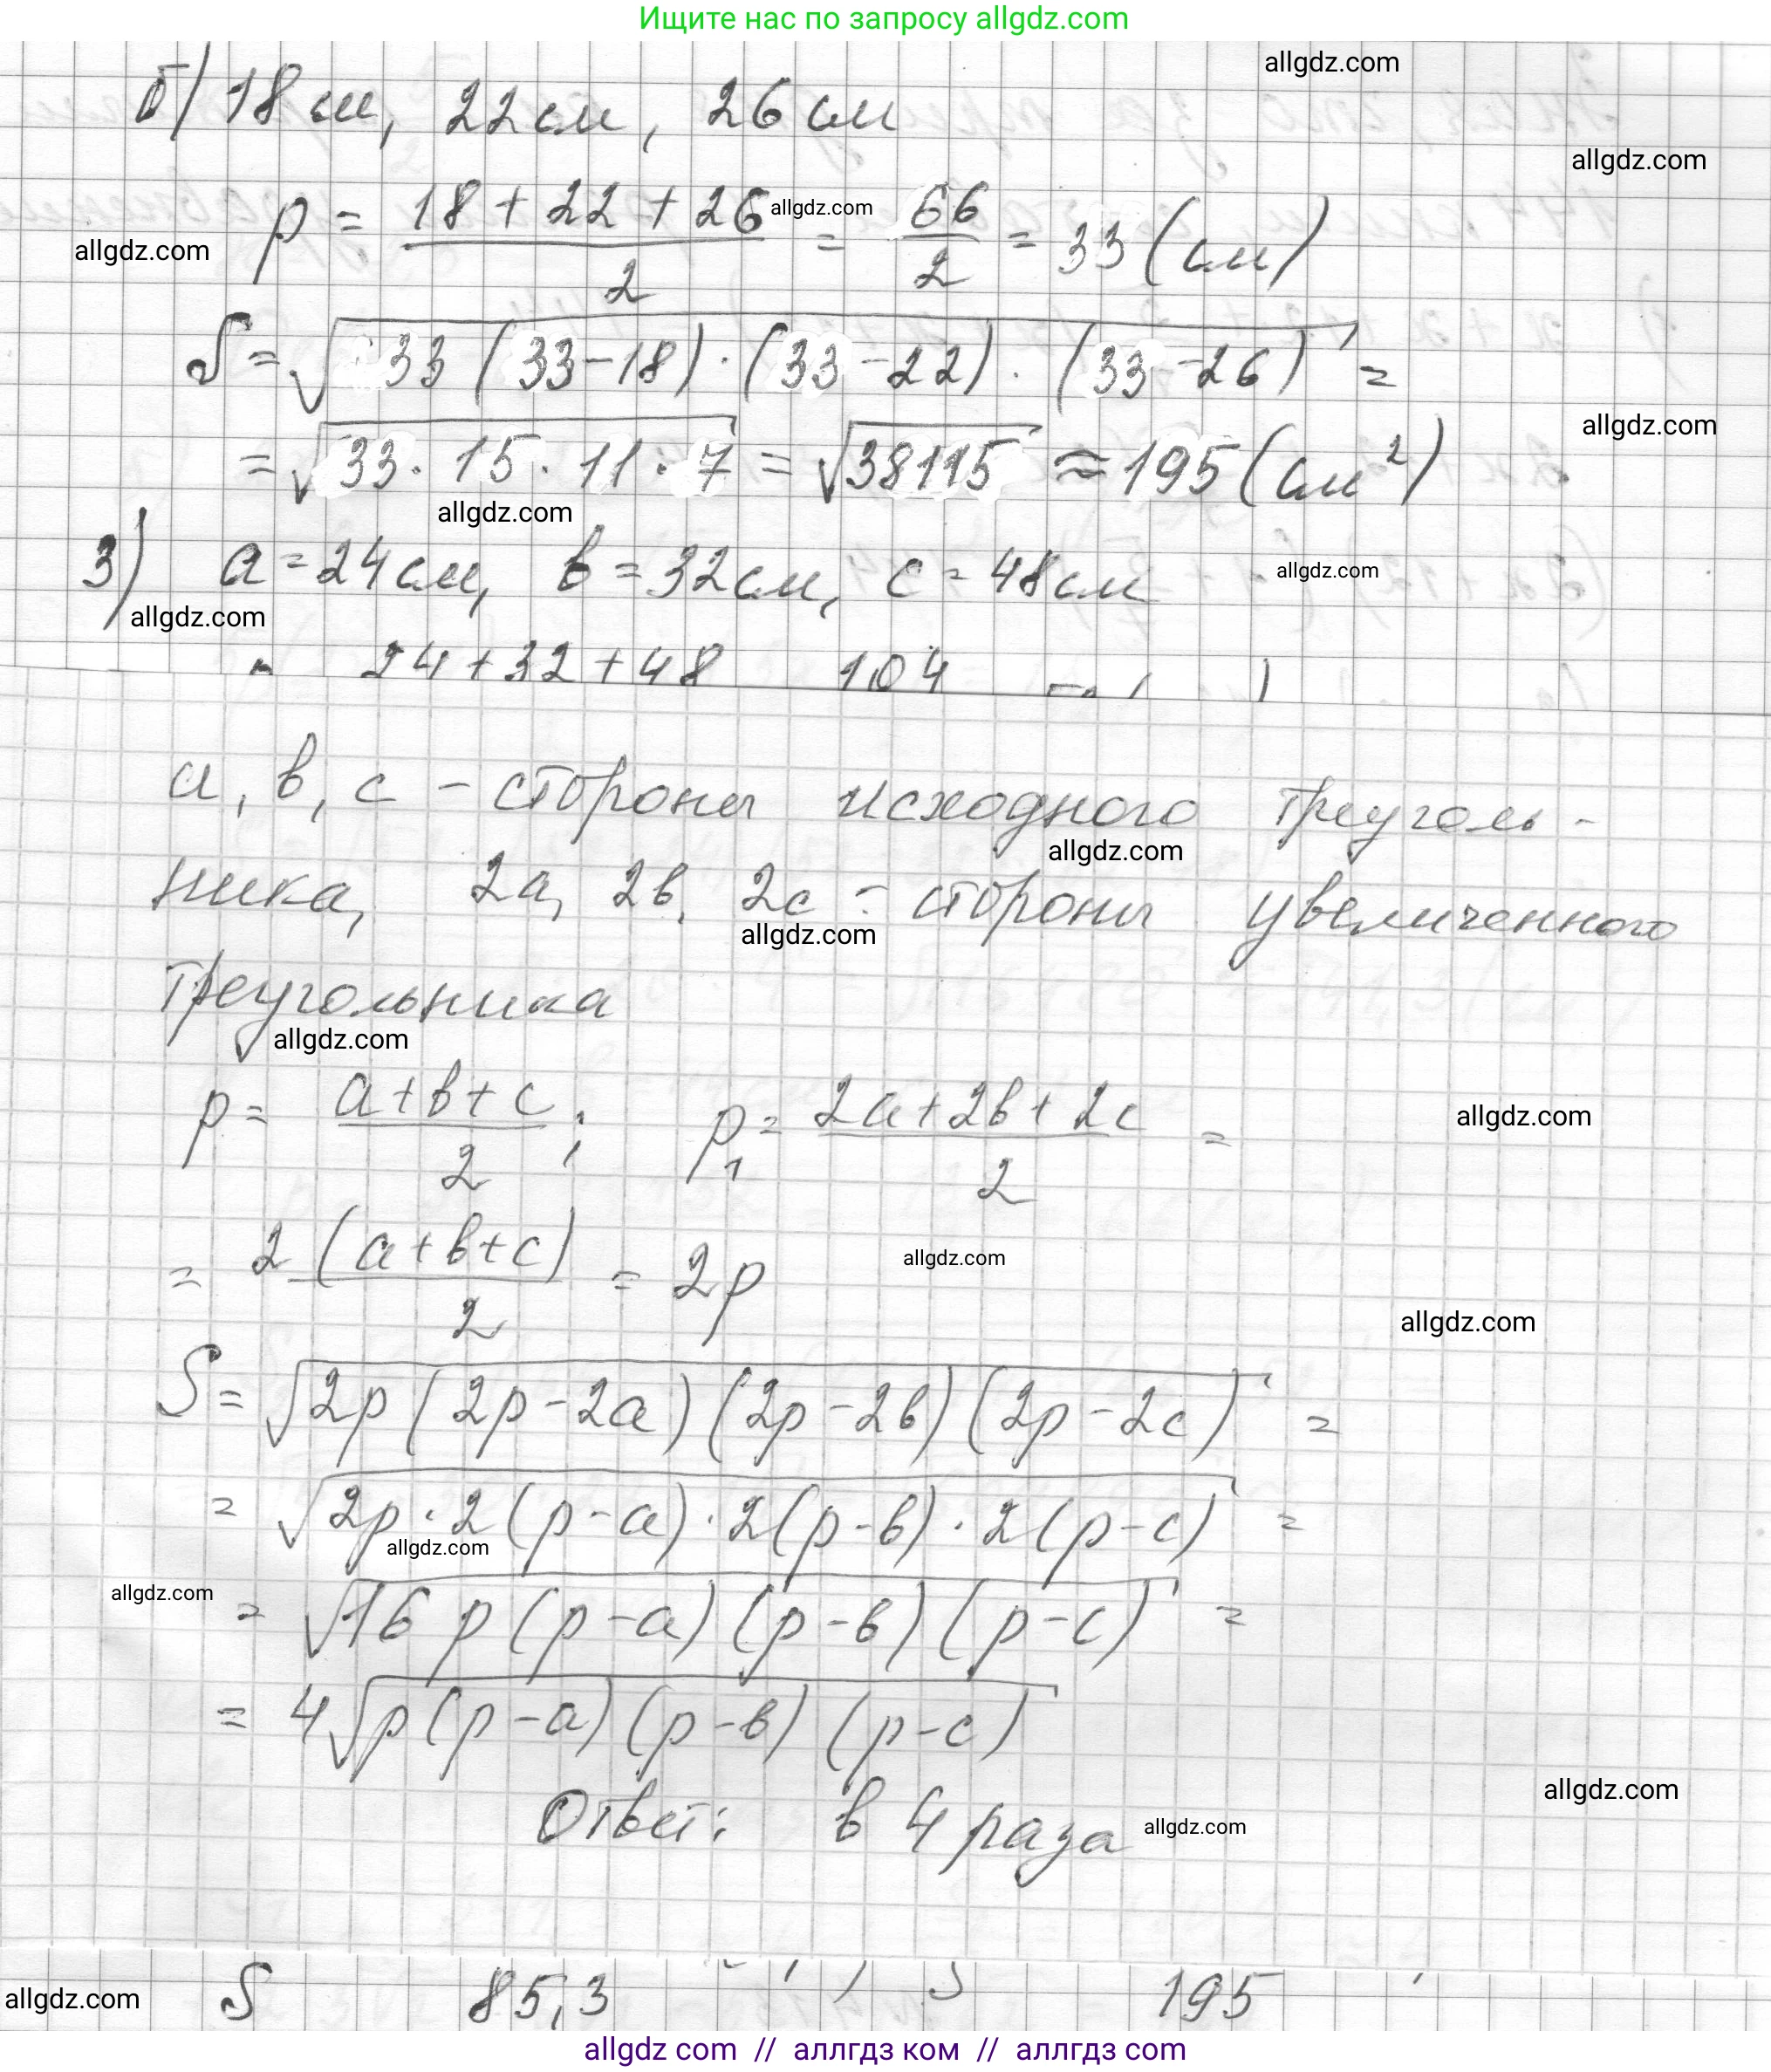 Ищите нас по запросу allgdz.com
allgdz.com
б) 18 см, 22 см, 26 см
allgdz.com
p = (18 + 22 + 26)/2 = 66/2 = 33 (см)
allgdz.com
allgdz.com
S = √(33 (33-18) · (33-22) · (33-26)) =
= √(33 · 15 · 11 · 7) = √38115 ≈ 195 (см²)
allgdz.com
allgdz.com
3) a = 24 см, в = 32 см, c = 48 см
allgdz.com
allgdz.com
24 + 32 + 48 104
a, в, c - стороны исходного треуголь-
allgdz.com
ника, 2a, 2в, 2c - стороны увеличенного
allgdz.com
треугольника
allgdz.com
p = (a+в+c)/2 ; p₁ = (2a+2в+2c)/2 =
allgdz.com
= 2(a+в+c)/2 = 2p
allgdz.com
allgdz.com
S = √(2p (2p-2a) (2p-2в) (2p-2c)) =
= √(2p · 2(p-a) · 2(p-в) · 2(p-c)) =
allgdz.com
allgdz.com
= √(16 p (p-a) (p-в) (p-c)) =
= 4√(p (p-a) (p-в) (p-c))
allgdz.com
Ответ: в 4 раза
allgdz.com
allgdz.com
S 85,3 S 195
allgdz com // аллгдз ком // аллгдз com